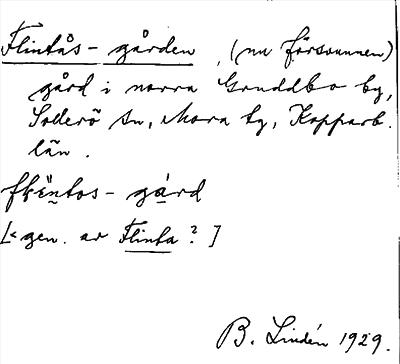 Flintås-gården, (nu försvunnen)
gård i norra Gruddbo by,
Sollerö sn, Mora tg, Kopparb.
län.
gård
[< gen. av Flinta? ]
B. Lindén 1929.